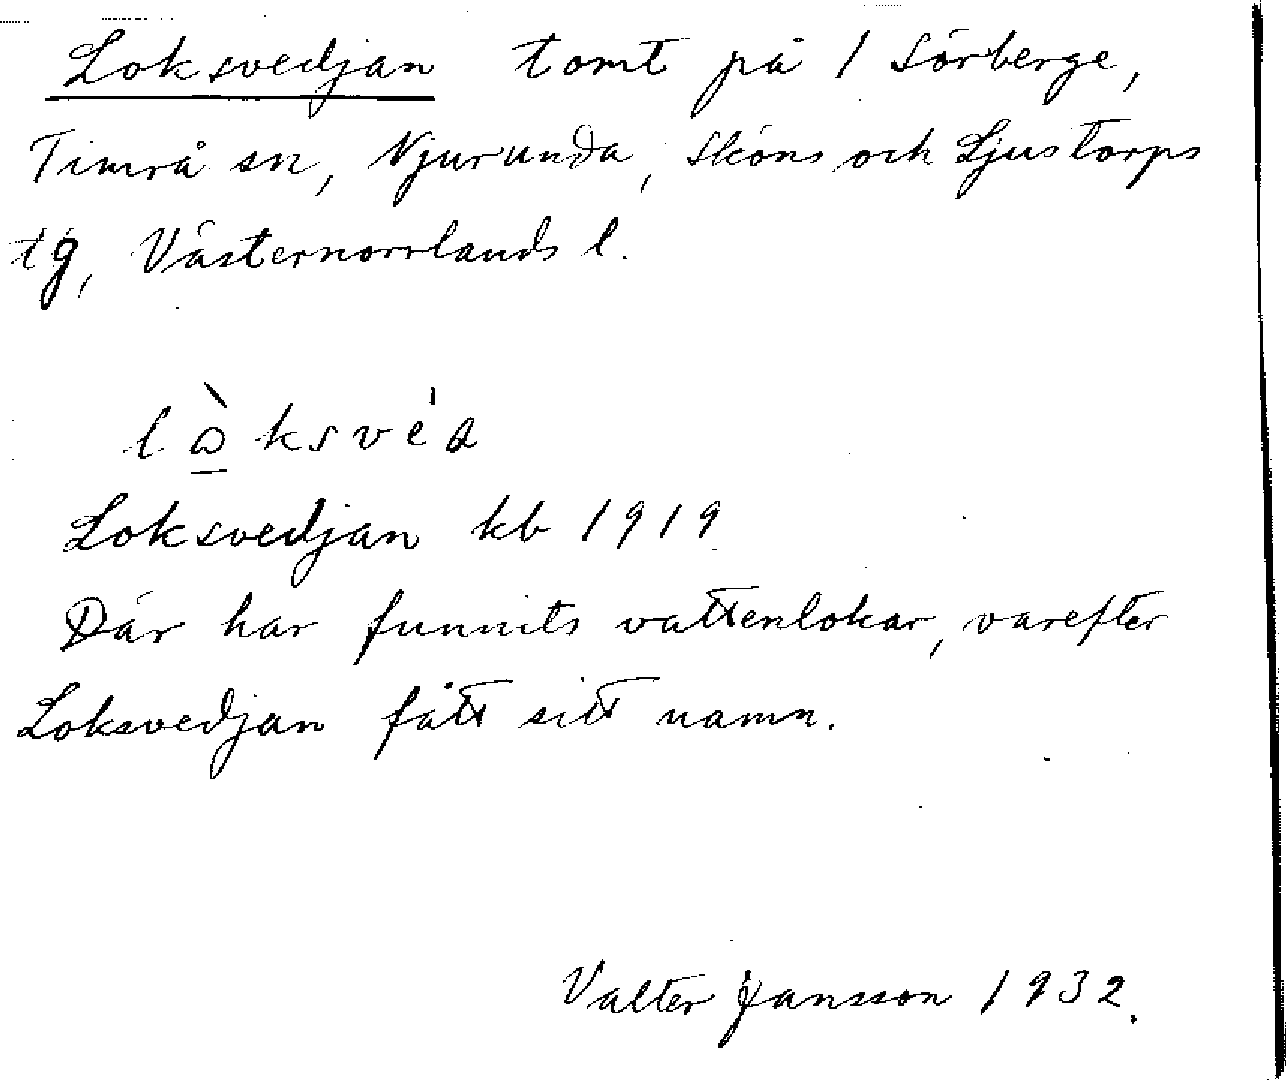 Loksvedjan tomt på 1 Sörberge,
Timrå sn, Njurunda, Sköns och Ljustorps
tg, Västernorrlands l.
Loksvedjan kb 1919
Där har funnits vattenlokar, varefter
Loksvedjan fått sitt namn.
Valter Jansson 1932.